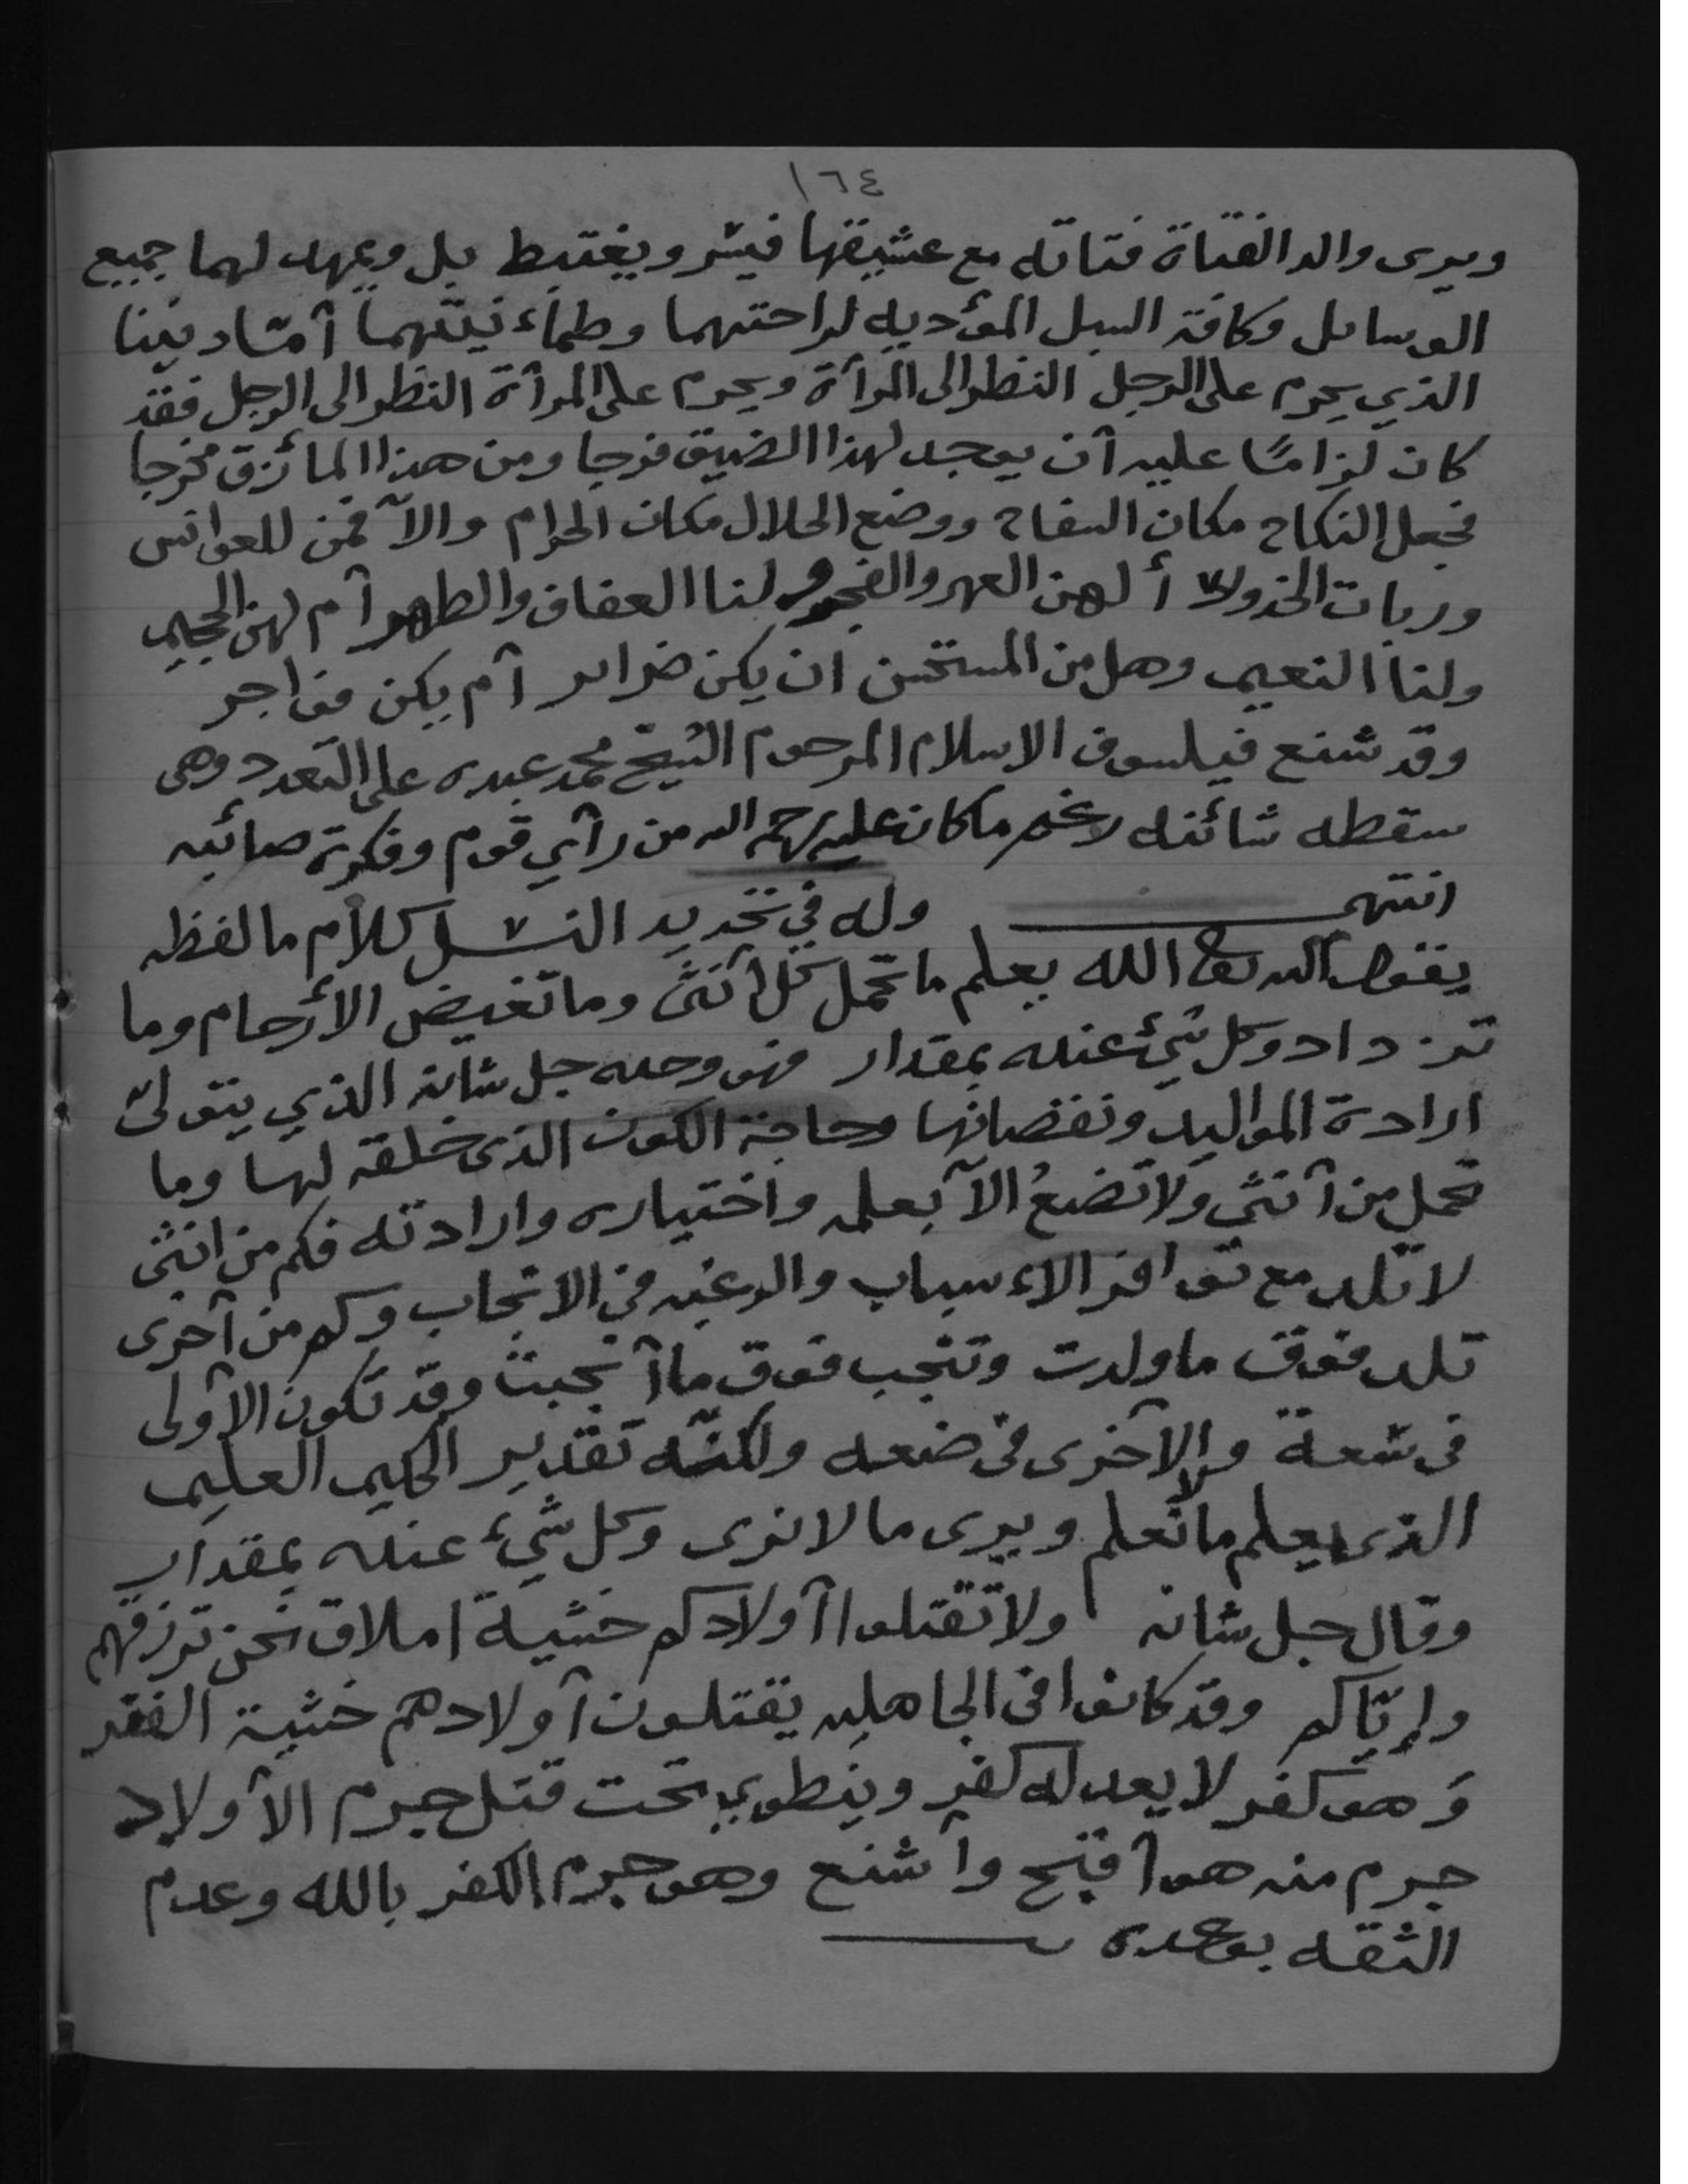 ١٦٤
ويرى والد الفتاة فتاته مع عشيقها فيسّر ويغتبط بل ويمهد لهما جميع
الوسايل وكافة السبل المؤديه لراحتهما وطماءنينتهما آمّا ديننا
الذي يحرم على الرجل النظر الى المرآة ويحرم على المرآة النظر الى الرجل فقد
كان لزامًا عليه آن يوجد لهذا الضيق فرجا ومن هذا المأزق مخرجا
فجعل النكاح مكان السفاح ووضع الحلال مكان الحرام والآ فمن للعوانس
وربات الخدور أ لهن العهر والفجور ولنا العفاف والطهر آم لهن الجحيم
ولنا النعيم وهل من المستحسن ان يكن ضراير آم يكن فواجر
وقد شنع فيلسوف الاسلام المرحوم الشيخ محمد عبده على التعدد وهى
سقطه شائنه رغم ما كان عليه رحمه الله من رآي قوم وفكرة صائبه
انتهى وله في تحديد النسل كلام ما لفظه
يقول الله تعا الله يعلم ما تحمل كل آنثى وما تغيض الأرحام وما
تزداد وكل شيء عنده بمقدار فهو وحده جل شانه الذي يتولىّ
ارادة المواليد ونقصانها وحاجة الكون الذى خلقه لها وما
تحمل من آنثى ولا تضعُ الآ بعلمه واختياره وارادته فكم من انثى
لا تلد مع توافر الاءسباب والرغبه في الانجاب وكم من آخرى
تلد فوق ما ولدت وتنجب فوق ما آنجبت وقد تكون الآولى
في سّعة والآخرى في ضعه ولكنّه تقدير الحكيم العليم
الذى يعلم ما لا نعلم ويرى ما لا نرى وكل شيء عنده بمقدار
وقال جل شانه ولا تقتلوا آولادكم خشية املاق نحن نرزقهم
وإيّاكم وقد كانوا في الجاهليه يقتلون آولادهم خشية الفقر
وَهو كفر لا يعدله كفر وينطوي تحت قتل جرم الآولاد
جرم منه هو آقبح وآشنع وهو جرم الكفر بالله وعدم
الثقه بوعده